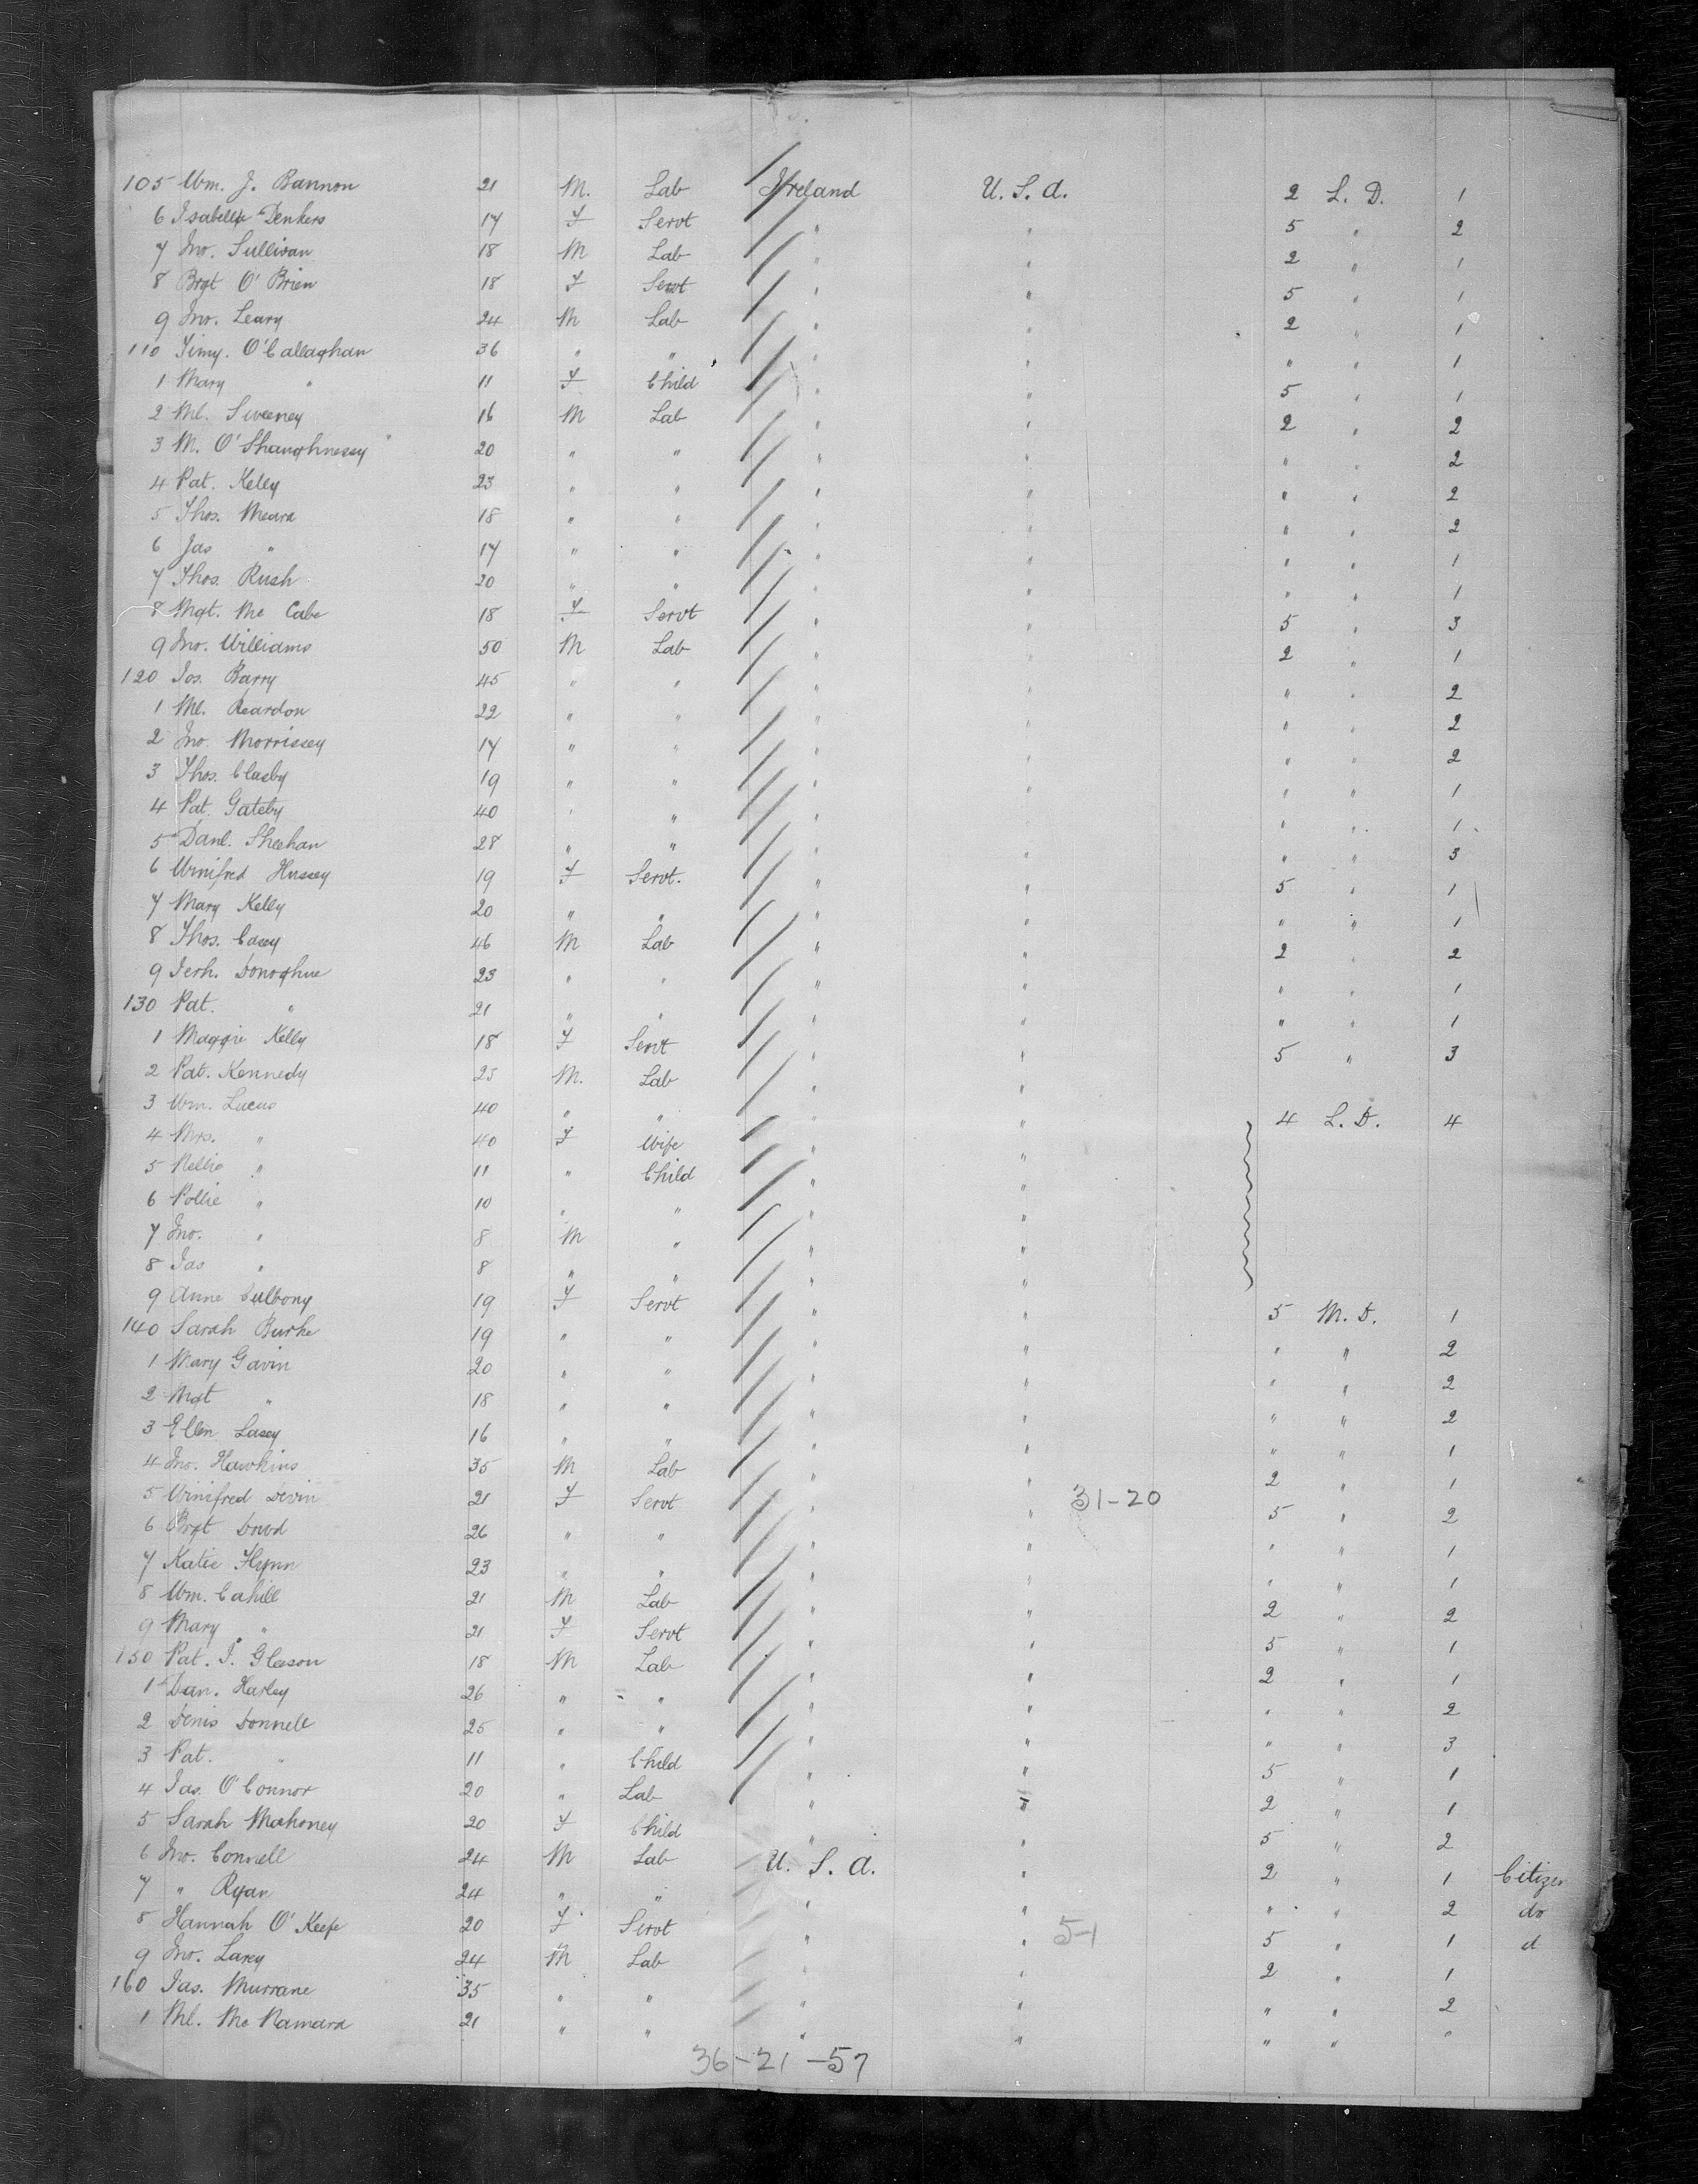 105 Wm. J. Bannon 21 M. Lab Ireland U. S. A. 2 L. D. 1
6 Isabella Denkers 17 F Servt " " 5 " 2
7 Jno. Sullivan 18 M Lab " " 2 " 1
8 Brgt O'Brien 18 F Servt " " 5 " 1
9 Jno. Leary 24 M Lab " " 2 " 1
110 Timy. O'Callaghan 36 " " " " " " 1
1 Mary " 11 F Child " " 5 " 1
2 Ml. Sweeney 16 M Lab " " 2 " 2
3 M. O'Shaughnessy 20 " " " " " " 2
4 Pat. Kelly 23 " " " " " " 2
5 Thos. Meara 18 " " " " " " 2
6 Jas " 17 " " " " " " 1
7 Thos. Rush 20 " " " " " " 1
8 Mgt. Mc Cabe 18 F Servt " " 5 " 3
9 Jno. Williams 50 M Lab " " 2 " 1
120 Jos. Barry 45 " " " " " " 2
1 Ml. Reardon 22 " " " " " " 2
2 Jno. Morrissey 17 " " " " " " 2
3 Thos. Clasby 19 " " " " " " 1
4 Pat. Gateby 40 " " " " " " 1
5 Danl. Sheehan 28 " " " " " " 3
6 Winifred Hussey 19 F Servt. " " 5 " 1
7 Mary Kelly 20 " " " " " " 1
8 Thos. Casey 46 M Lab " " 2 " 2
9 Jerh. Donoghue 23 " " " " " " 1
130 Pat. " 21 " " " " " " 1
1 Maggie Kelly 18 F Servt " " 5 " 3
2 Pat. Kennedy 25 M. Lab " "
3 Wm. Lucas 40 " " " " 4 L. D. 4
4 Mrs. " 40 F Wife " "
5 Nellie " 11 " Child " "
6 Pollie " 10 " " " "
7 Jno. " 8 M " " "
8 Jas " 8 " " " "
9 Anne 19 F Servt " " 5 M. D. 1
140 Sarah Burke 19 " " " " " " 2
1 Mary Gavin 20 " " " " " " 2
2 Mgt " 18 " " " " " " 2
3 Ellen Lasey 16 " " " " " " 1
4 Jno. Hawkins 35 M Lab " " 2 " 1
5 Winifred Devin 21 F Servt " " 31-20 5 " 2
6 Brgt Dowd 26 " " " " " " 1
7 Katie Flynn 23 " " " " " " 1
8 Wm. Cahill 21 M Lab " " 2 " 2
9 Mary " 21 F Servt " " 5 " 1
150 Pat. J. Gleason 18 M Lab " " 2 " 1
1 Dan. Harley 26 " " " " " " 2
2 Denis Donnell 25 " " " " " " 3
3 Pat. " 11 " Child " " 5 " 1
4 Jas. O'Connor 20 " Lab " " 2 " 1
5 Sarah Mahoney 20 F Child " " 5 " 2
6 Jno. Connell 24 M Lab U. S. A. " 2 " 1 Citizen
7 " Ryan 24 " " " " " " 2 do
8 Hannah O'Keefe 20 F Servt " " 5-1 5 " 1 d
9 Jno. Larey 24 M Lab " " 2 " 1
160 Jas. Murrane 35 " " " " " " 2
1 Ml. Mc Namara 21 " " " " " " "
36-21-57